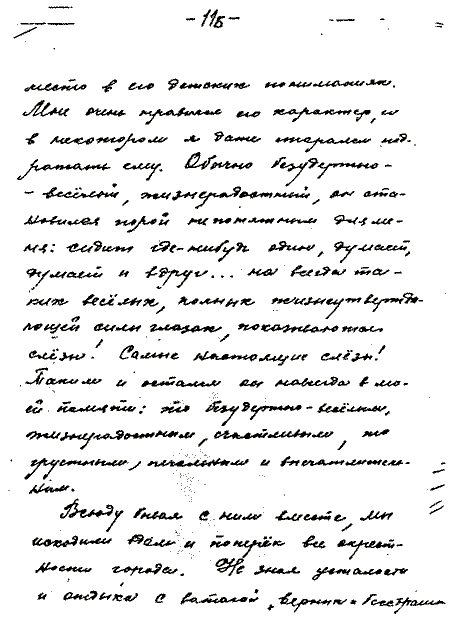 -11б-
место в его детских пониманиях.
Мне очень нравился его характер, и
в некотором я даже старался под-
ражать ему. Обычно безудержно-
-весёлый, жизнерадостный, он ста-
новился порой непонятным для ме-
ня: сидит где-нибудь один, думает,
думает и вдруг... на всегда та-
ких весёлых, полных жизнеутвержда-
ющей силы глазах, показываются
слёзы! Самые настоящие слёзы!
Таким и остался он навсегда в мо-
ей памяти: то безудержно-весёлым,
жизнерадостным, счастливым, то
грустным, печальным и впечатлитель-
ным.
Всюду бывая с ним вместе, мы
исходили вдоль и поперёк все окрест-
ности города. Не зная усталости
и отдыха с ватагой „верных и бесстраш